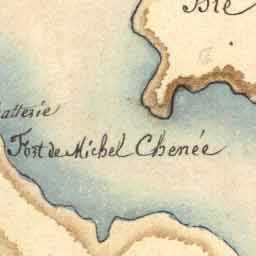 Isle
atterie
Fort de Michel Chenée